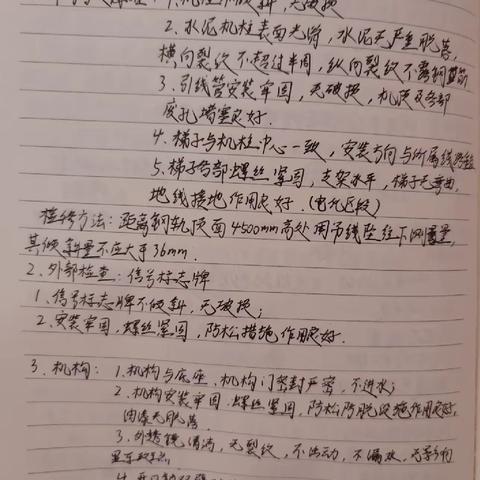 1. 机柱不倾斜, 无破损
2. 水泥机柱表面光滑, 水泥无严重脱落,
横向裂纹不超过半周, 纵向裂纹不露钢筋
3. 引线管安装牢固, 无破损, 机顶及各部
废孔堵塞良好.
4. 梯子与机柱中心一致, 安装方向与所属线路
5. 梯子各部螺丝紧固, 支架水平, 梯子无弯曲,
地线接地作用良好. (电化区段)
检修方法: 距离钢轨顶面4500mm高处用吊线坠往下测量,
其倾斜量不应大于36mm.
2. 外部检查: 信号标志牌
1、信号标志牌不倾斜, 无破损;
2、安装牢固, 螺丝紧固, 防松措施作用良好.
3. 机构: 1. 机构与底座、机构门密封严密, 不进水;
2、机构安装牢固, 螺丝紧固, 防松防脱措施作用良好,
油漆无脱落.
3. 外透镜清洁, 无裂纹, 不活动, 不漏水,
显示